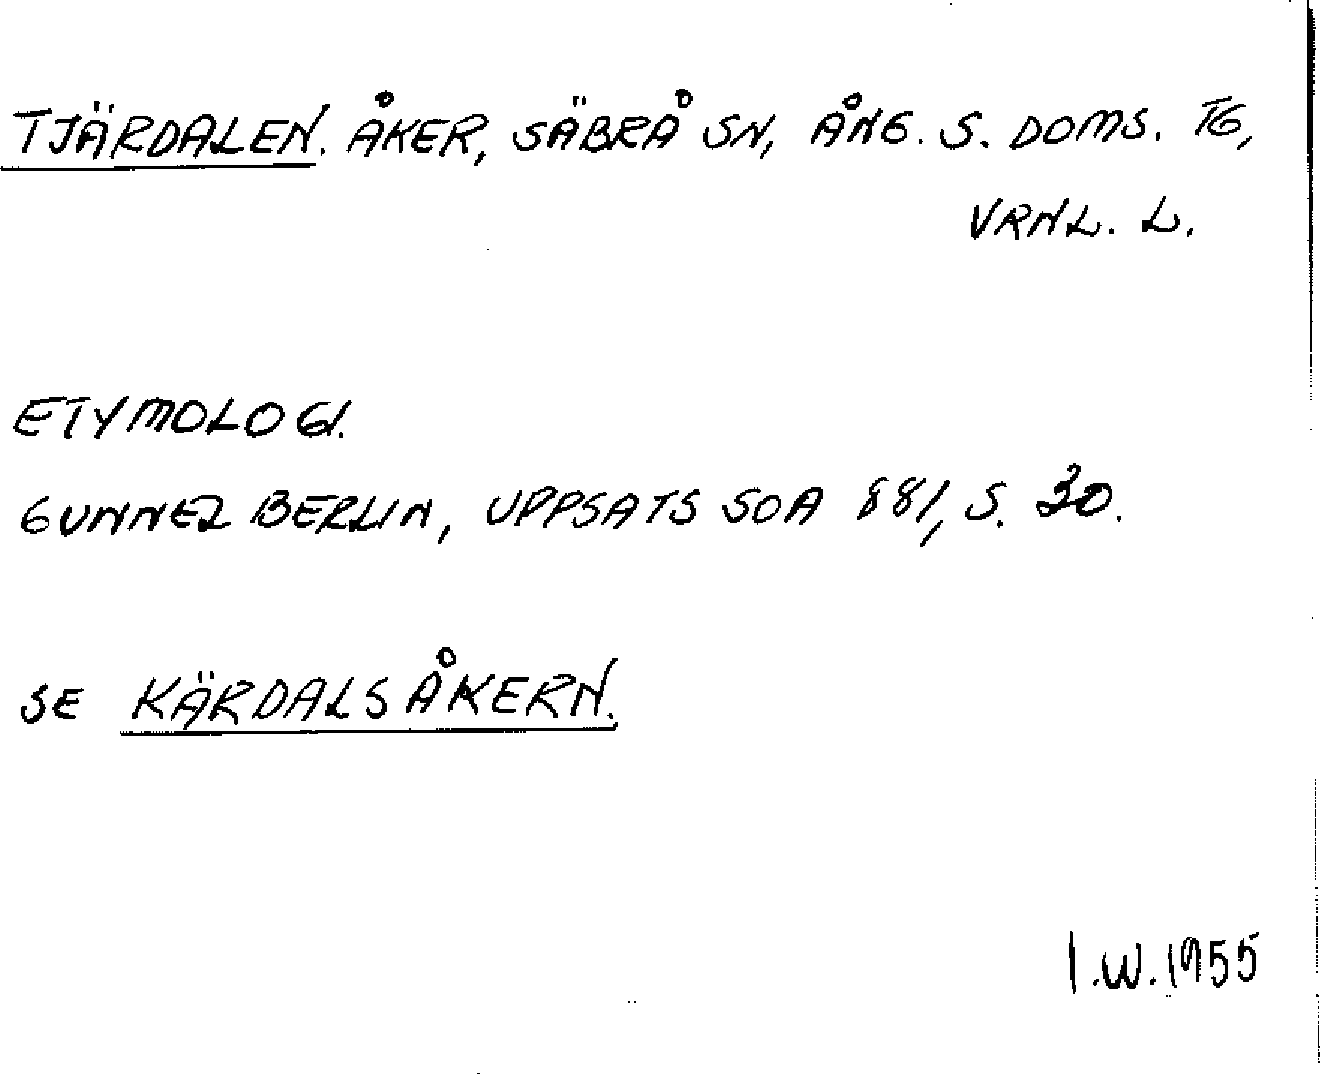 TJÄRDALEN. ÅKER, SÄBRÅ SN, ÅNG. S. DOMS. TG,
VRNL. L.
ETYMOLOGI.
GUNNEL BERLIN, UPPSATS SOA 881, S. 30.
SE KÄRDALSÅKERN.
I.W. 1955